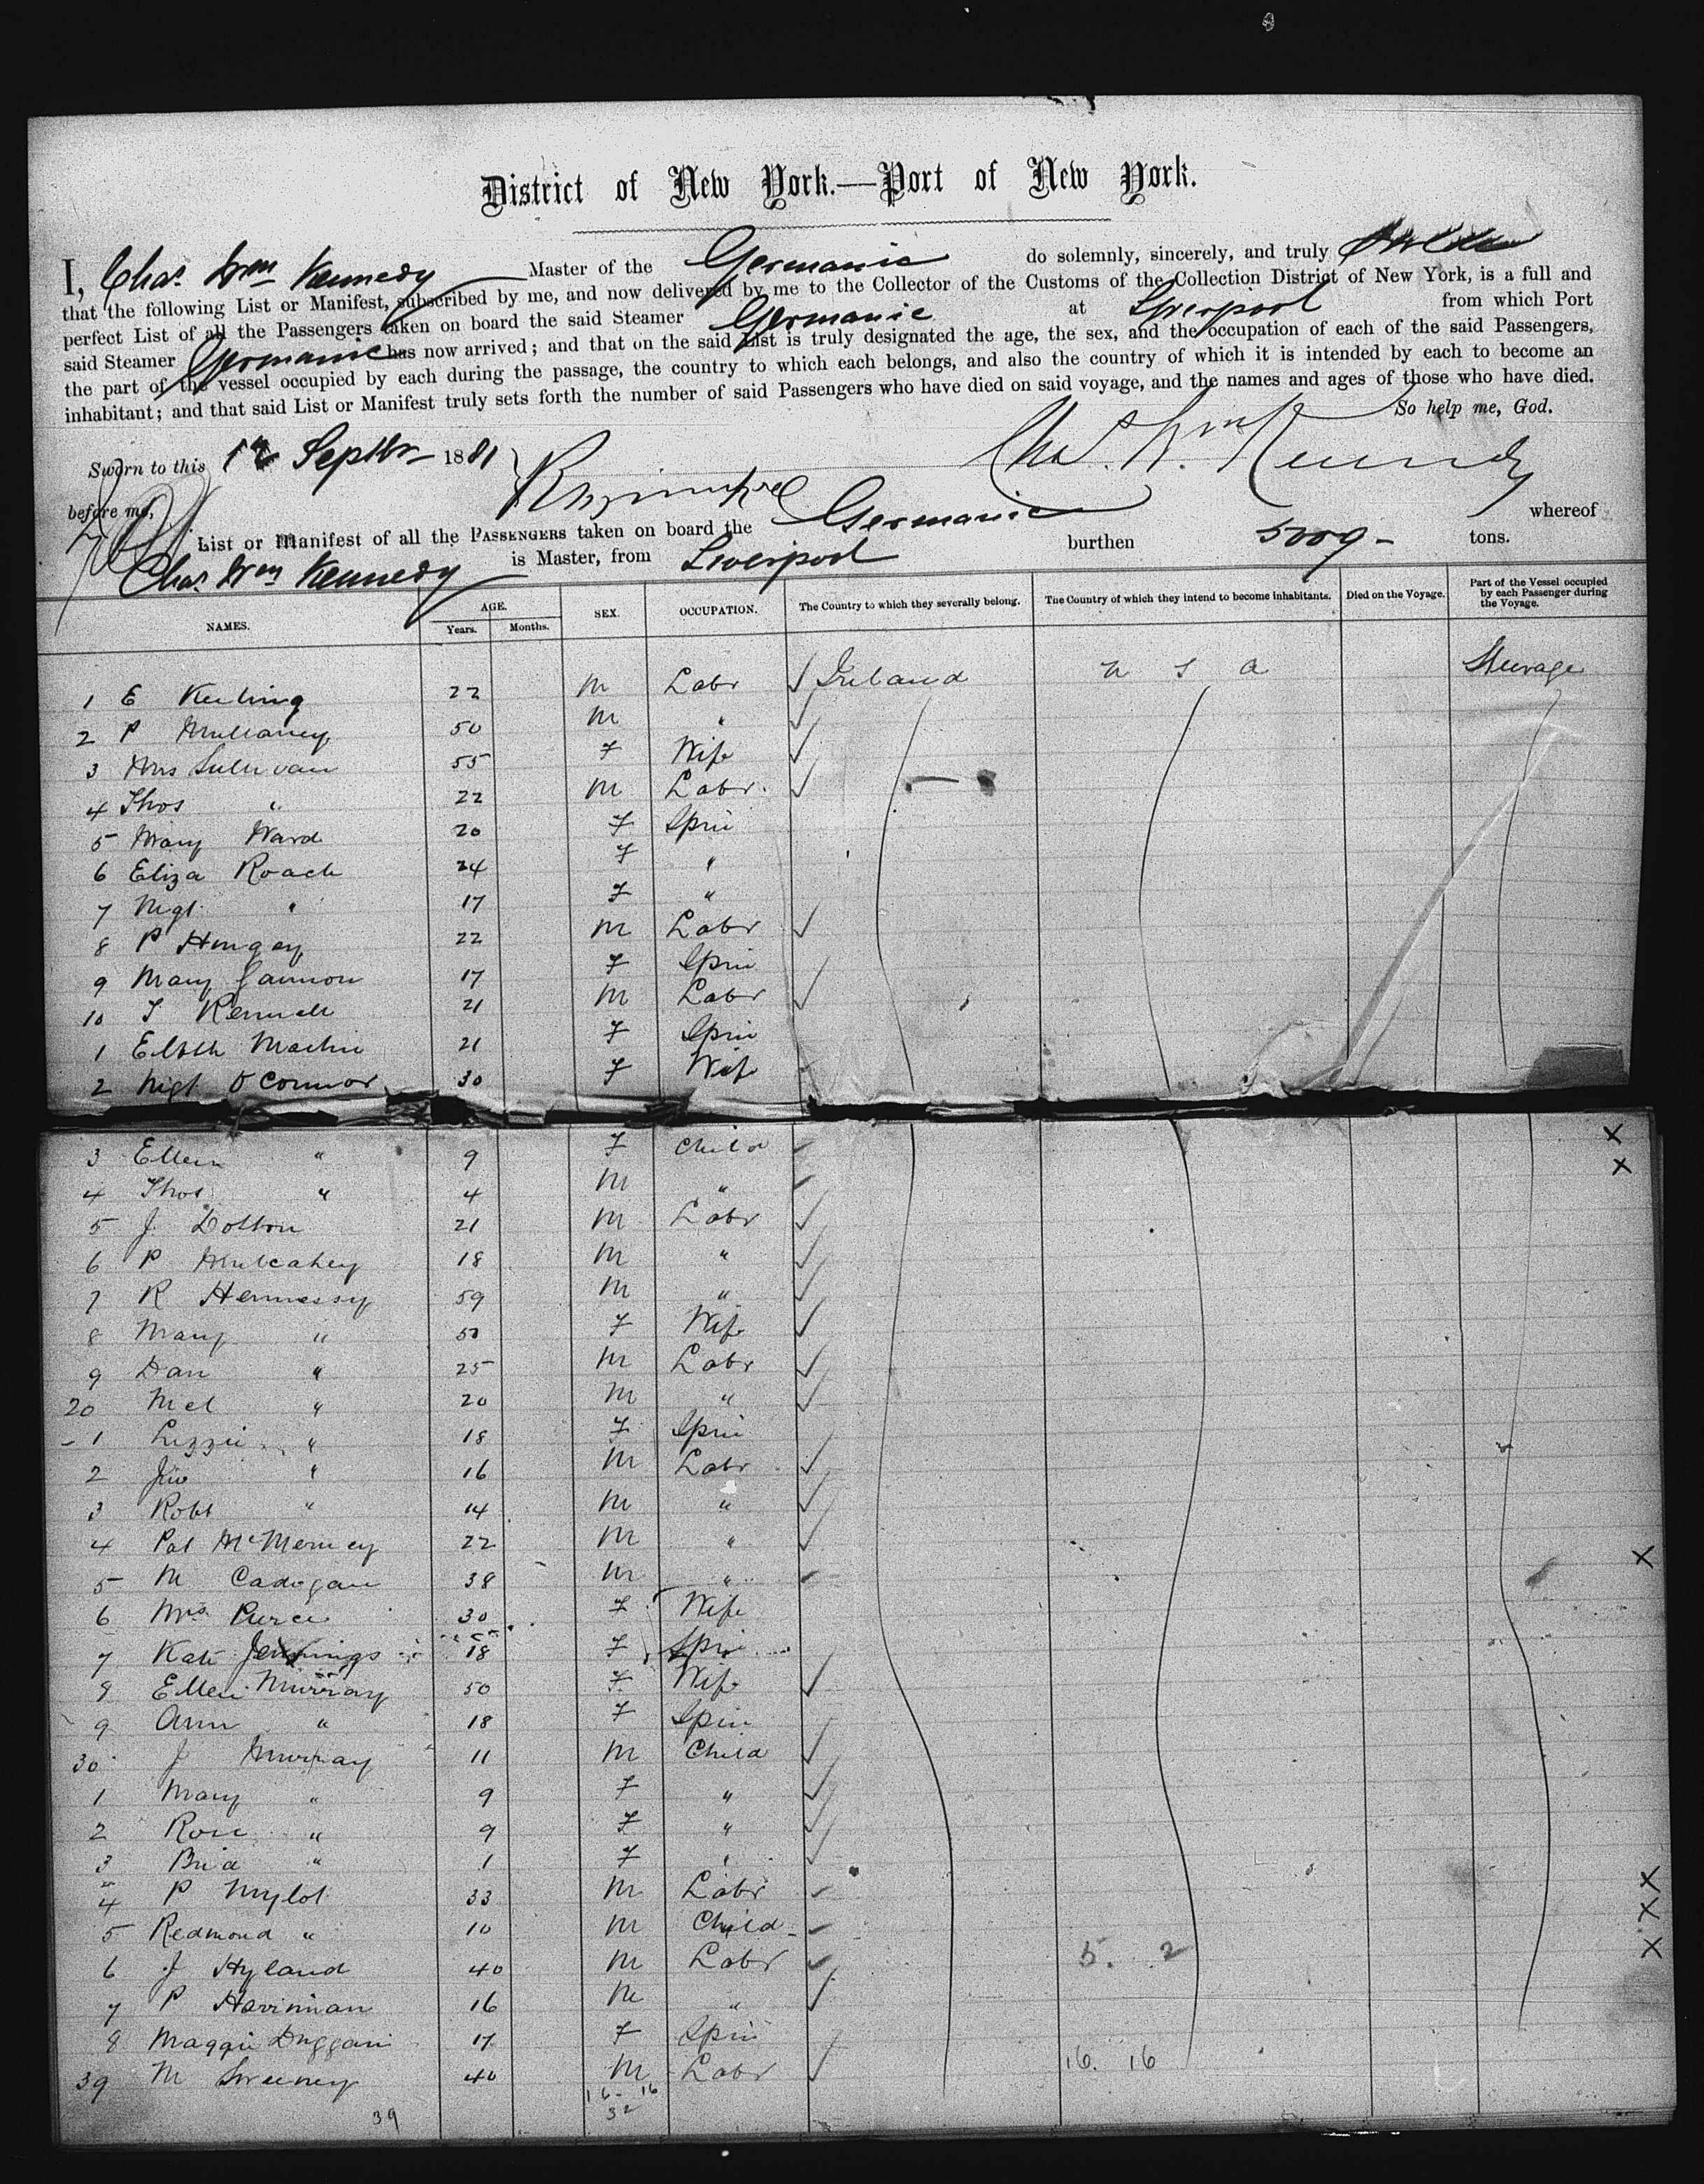 District of New York.—Port of New York.
I, Chas. Wm Kennedy Master of the Germanic do solemnly, sincerely, and truly
that the following List or Manifest, subscribed by me, and now delivered by me to the Collector of the Customs of the Collection District of New York, is a full and
perfect List of all the Passengers taken on board the said Steamer Germanic at Liverpool from which Port
said Steamer Germanic has now arrived; and that on the said List is truly designated the age, the sex, and the occupation of each of the said Passengers,
the part of the vessel occupied by each during the passage, the country to which each belongs, and also the country of which it is intended by each to become an
inhabitant; and that said List or Manifest truly sets forth the number of said Passengers who have died on said voyage, and the names and ages of those who have died.
So help me, God.
Sworn to this Septbr 1881 Chas. Wm Kennedy
before me,
List or Manifest of all the PASSENGERS taken on board the Germanic whereof
Chas. Wm Kennedy is Master, from Liverpool burthen 5009 - tons.
NAMES. AGE. Years. Months. SEX. OCCUPATION. The Country to which they severally belong. The Country of which they intend to become inhabitants. Died on the Voyage. Part of the Vessel occupied by each Passenger during the Voyage.
1 E Keeling 22 M Labr Ireland U S A Steerage
2 P Mullaney 50 M "
3 Mrs Sullivan 55 F Wife
4 Thos " 22 M Labr.
5 Mary Ward 20 F Spin
6 Eliza Roach 24 F "
7 Mgt " 17 F "
8 P 22 M Labr
9 Mary Gannon 17 F Spin
10 21 M Labr
1 Elbth Machin 21 F Spin
2 Mgt O'Connor 30 F Wife
3 Ellen " 9 F Child
4 Thos " 4 M "
5 J Dolton 21 M Labr
6 P Mulcahey 18 M "
7 R Hennessy 59 M "
8 Mary " 50 F Wife
9 Dan " 25 M Labr
20 Mcl " 20 M "
1 Lizzie " 18 F Spin
2 Jno " 16 M Labr
3 Robt " 14 M "
4 Pat McMerney 22 M "
5 M Cadogan 38 M "
6 Mrs Pierce 30 F Wife
7 Kate Jennings 18 F Spin
8 Ellen Murray 50 F Wife
9 Ann " 18 F Spin
30 J Murray 11 M Child
1 Mary " 9 F "
2 Rose " 9 F "
3 Brid " 1 F "
4 P Mylot 33 M Labr
5 Redmond " 10 M Child
6 J Hyland 40 M Labr 5. 2
7 P Harinian 16 M "
8 Maggie Duggan 17 F Spin
39 M Sweeney 40 M Labr 16. 16
39 16 - 16
32